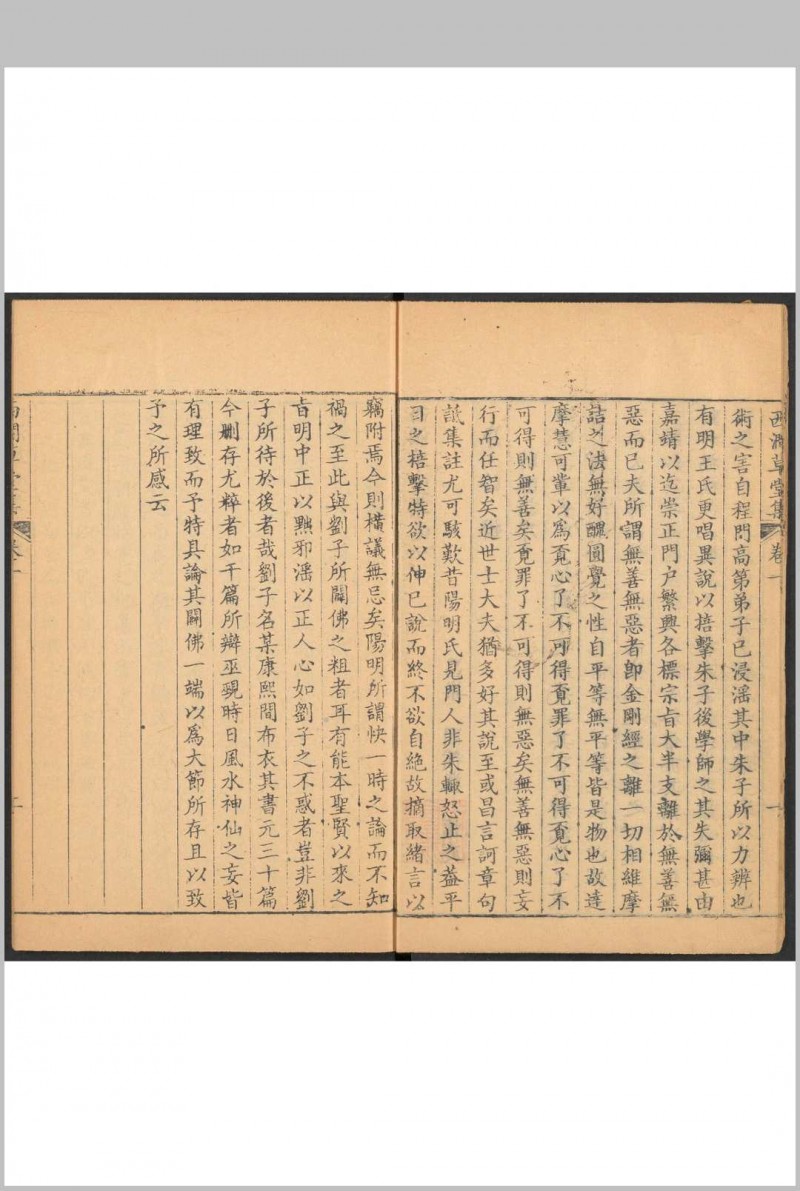 西澗草堂集 卷一 一
術之害自程門高第弟子已浸淫其中朱子所以力辨也
有明王氏更唱異說以掊擊朱子後學師之其失彌甚由
嘉靖以迄崇正門户繁興各標宗㫖大半支離於無善無
惡而已夫所謂無善無惡者卽金剛經之離一切相維摩
詰之法無好醜圓覺之性自平等無平等皆是物也故達
摩慧可輩以為覓心了不可得覓罪了不可得覓心了不
可得則無善矣覓罪了不可得則無惡矣無善無惡則妄
行而任智矣近世士大夫猶多好其說至或昌言訶章句
詆集註尤可駭歎昔陽明氏見門人非朱輙怒止之葢平
日之掊擊特欲以伸已說而終不欲自絶故摘取緒言以
竊附焉今則橫議無忌矣陽明所謂快一時之論而不知
禍之至此與劉子所闢佛之粗者耳有能本聖賢以來之
㫖明中正以黜邪淫以正人心如劉子之不惑者豈非劉
子所待於後者哉劉子名某康熙間布衣其書元三十篇
今刪存尤粹者如干篇所辯巫覡時日風水神仙之妄皆
有理致而予特具論其闢佛一端以爲大節所存且以致
予之所感云